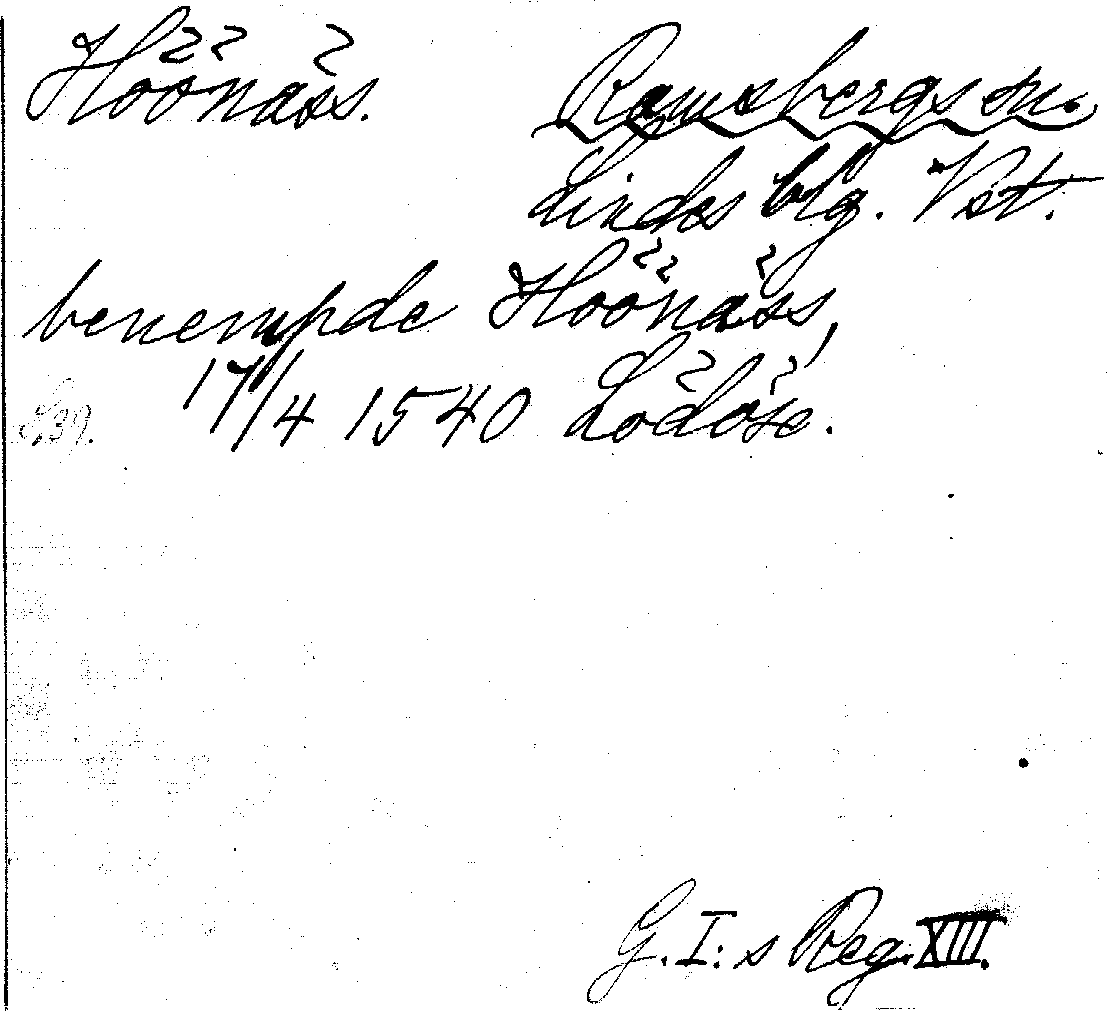 Höönäss. Ramsbergs sn.
Lindes blg. Vst.
benempde Höönäss,
17/4 1540 Lödöse.
S. 39.
G. I:s Reg. XIII.